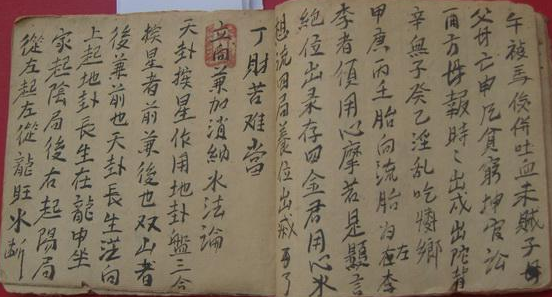 午被馬後併吐血未賊子
父母亡申尼貧窮押官訟
酉方毋報時〻出戍出陀背
辛無子癸乙淫乱吃惱鄉
甲庚丙壬胎向流胎為左李
李者須用心摩若是顯言
絕位出录存四金君用心水
流四局養位出賊
丁財苦难當
立向兼加消納水法論
天卦挨星作用地卦盤三合
挨星者前兼後也双山者
後兼前也天卦長生從向
上起地卦長生在龍申坐
家起陰局後右起陽局
從左起左從龍旺水断